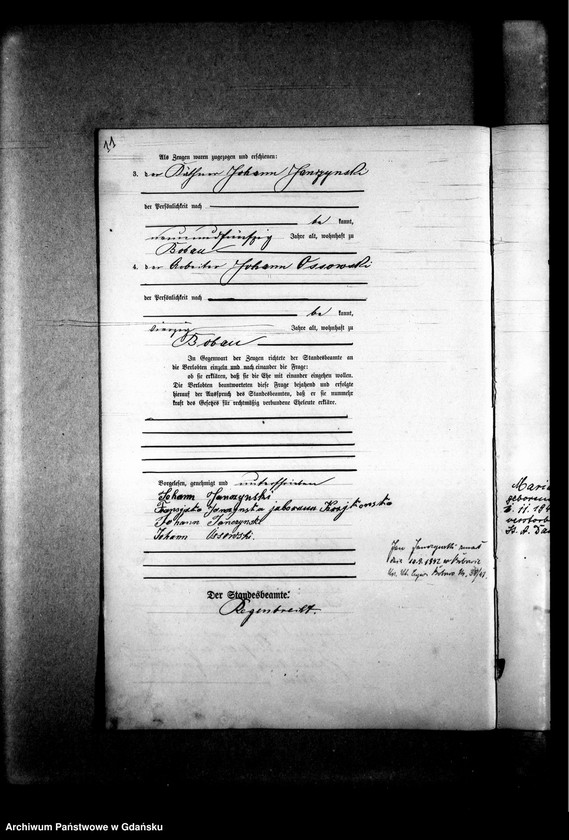 11
Als Zeugen waren zugezogen und erschienen:
3. der Käthner Johann Janczynski
der Persönlichkeit nach
be kannt,
neunundfünfzig Jahre alt, wohnhaft zu
Bobau
4. der Arbeiter Johann Ossowski
der Persönlichkeit nach
be kannt,
vierzig Jahre alt, wohnhaft zu
Bobau
In Gegenwart der Zeugen richtete der Standesbeamte an
die Verlobten einzeln und nach einander die Frage:
ob sie erklären, daß sie die Ehe mit einander eingehen wollen.
Die Verlobten beantworteten diese Frage bejahend und erfolgte
hierauf der Ausspruch des Standesbeamten, daß er sie nunmehr
kraft des Gesetzes für rechtmäßig verbundene Eheleute erkläre.
Vorgelesen, genehmigt und unterschrieben
Johann Janczynski
Janczynska
Johann Janczynski
Johann Ossowski.
Jan Janczynski zmarł
dnia
Der Standesbeamte.
Regenbrecht.
Maria
geboren
2. 11. 19
verstorb
St. A.
Archiwum Państwowe w Gdańsku